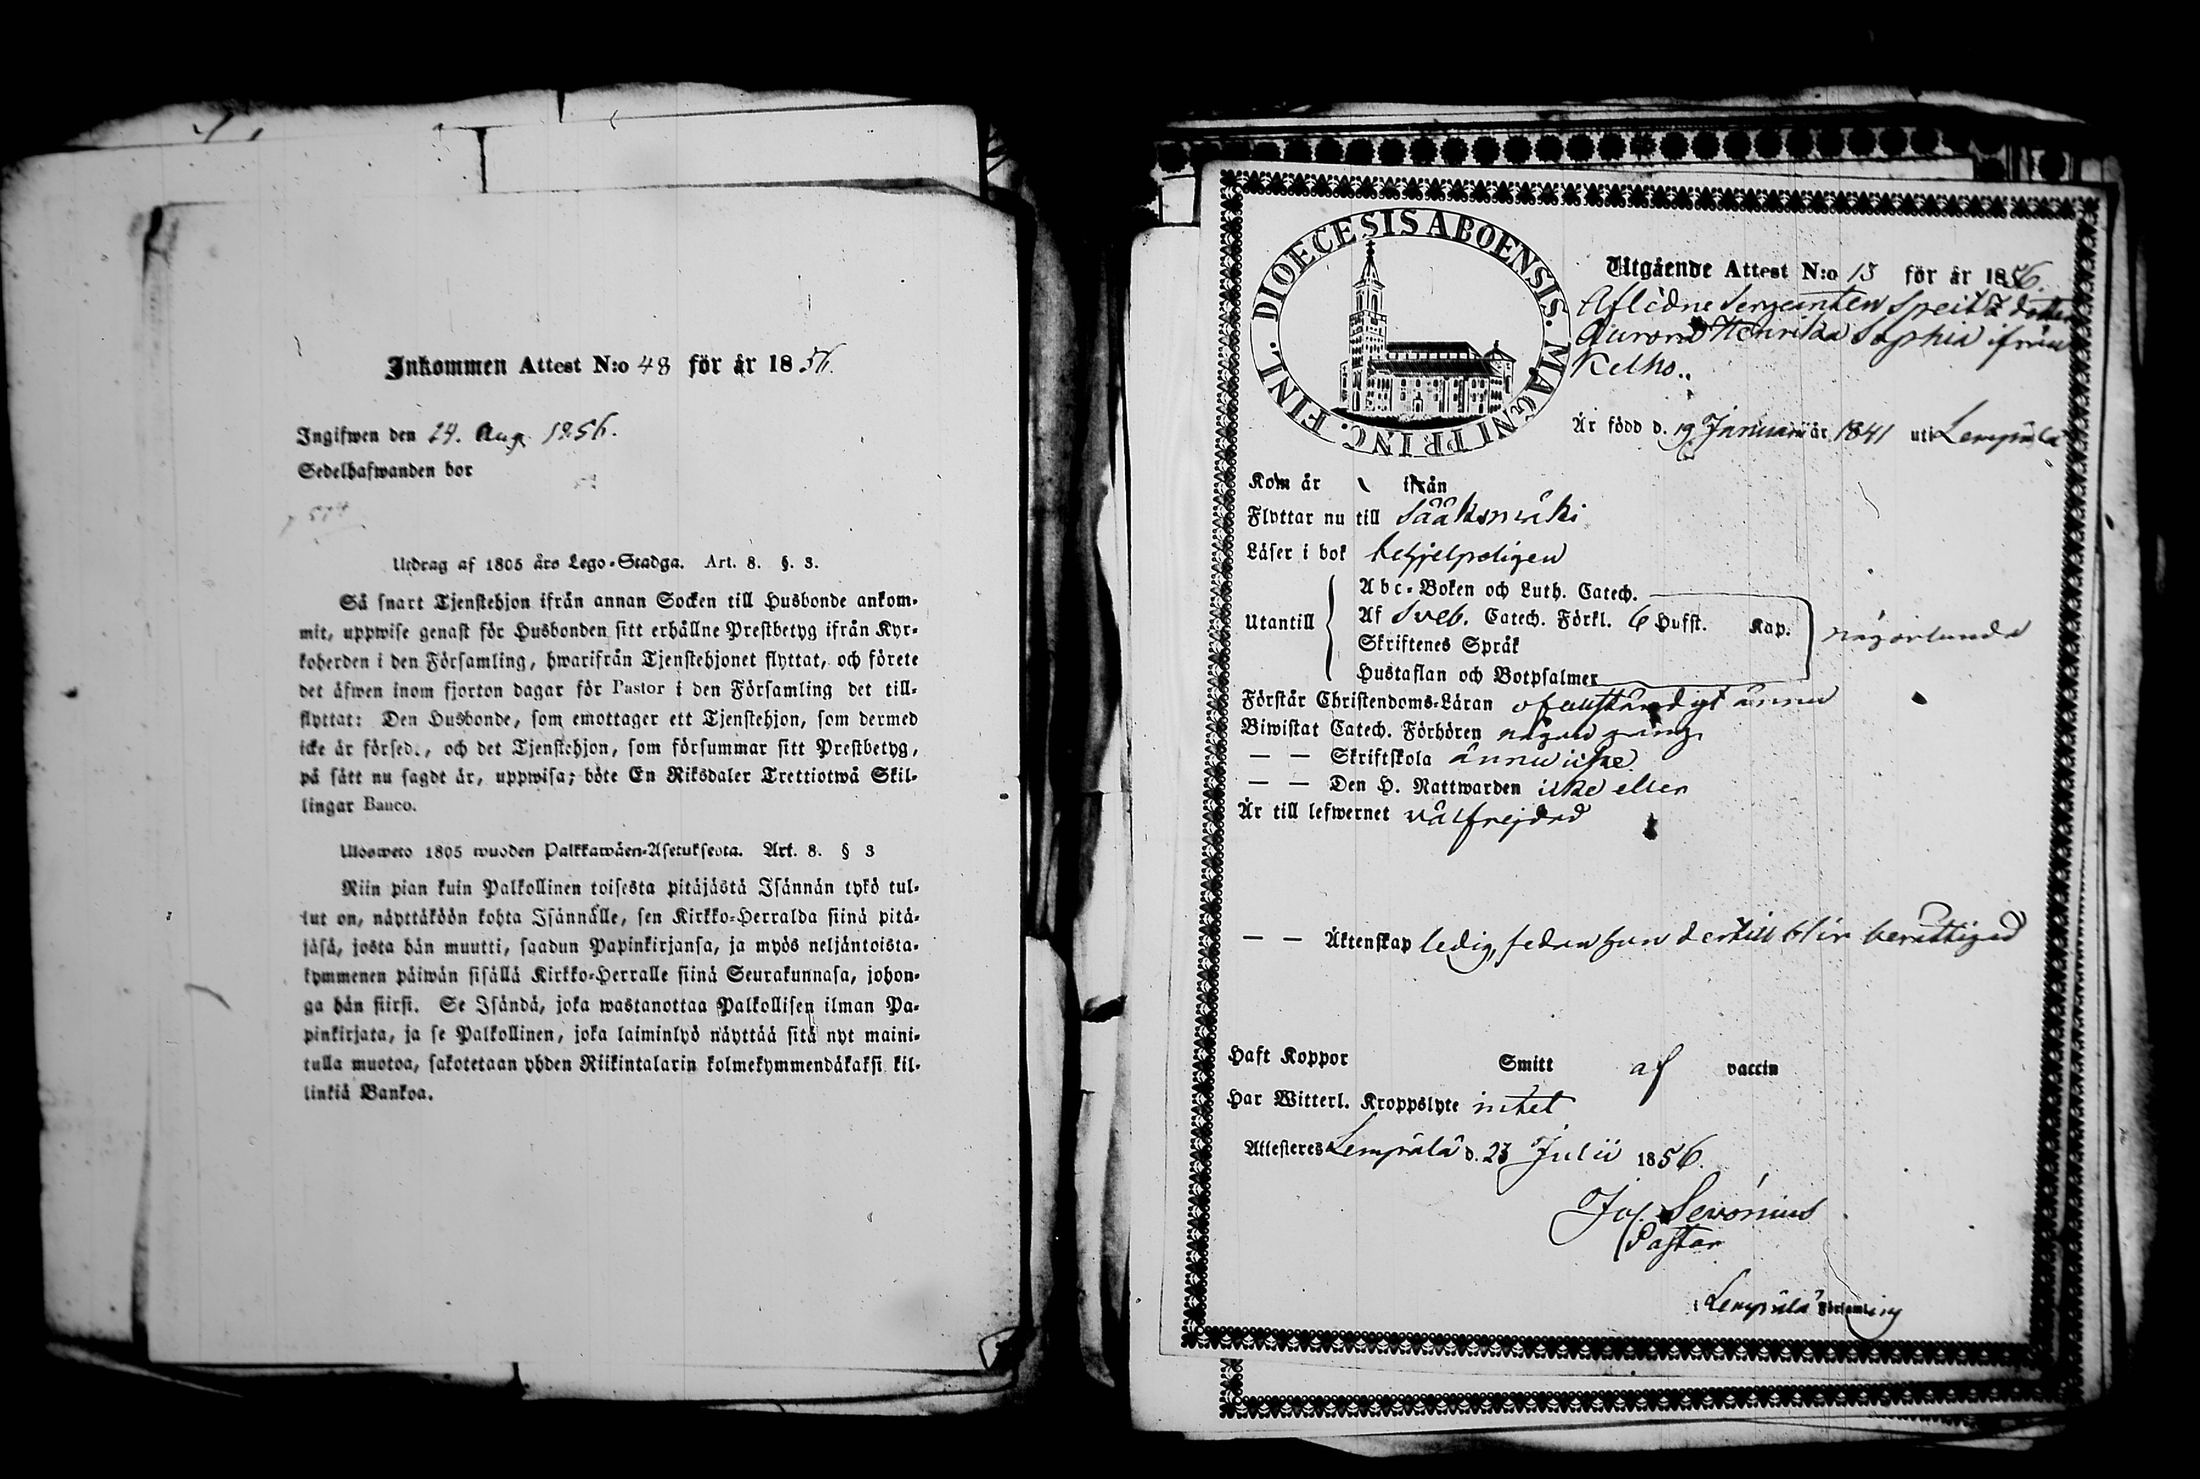 Inkommen Attest N:o 48 för år 1856.
Ingifwen den 24. Aug. 1856.
Sedelhafwanden bor
Utdrag af 1805 års Lego-Stadga. Art. 8. §. 3.
Så snart Tjenstehjon ifrån annan Socken till Husbonde ankom-
mit, uppwise genast för Husbonden sitt erhållne Prestbetyg ifrån Kyr-
koherden i den Församling, hwarifrån Tjenstehjonet flyttat, och förete
det äfwen inom fjorton dagar för Pastor i den Församling det till-
flyttat: Den Husbonde, som emottager ett Tjenstehjon, som dermed
icke är försed., och det Tjenstehjon, som försummar sitt Prestbetyg,
på sätt nu sagdt är, uppwisa; böte En Riksdaler Trettiotwå Skil-
lingar Banco.
Ulosweto 1805 wuoden Palkkawäen-Asetuksesta. Art. 8. § 3
Niin pian kuin Palkollinen toisesta pitäjästä Isännän tykö tul-
lut on, näyttäköön kohta Isännälle, sen Kirkko-Herralda siinä pitä-
jäsä, josta hän muutti, saadun Papinkirjansa, ja myös neljäntoista-
kymmenen päiwän sisällä Kirkko-Herralle siinä Seurakunnasa, johon-
ga hän siirsi. Se Isändä, joka wastanottaa Palkollisen ilman Pa-
pinkirjata, ja se Palkollinen, joka laiminlyö näyttää sitä nyt maini-
tulla muotoa, sakotetaan yhden Riikintalarin kolmekymmendäkaksi kil-
linkiä Bankoa.
DIOECESIS ABOENSIS. MAGNI PRINC. FINL.
Utgående Attest N:o 13 för år 1856.
Aflidne Sergeanten Speitz dotter
Aurora Henrika Sophia ifrån
Kelho.
Är född d. 19 Januarii år 1841 uti Lempälä
Kom år ifrån
Flyttar nu till Sääksmäki
Läser i bok behjelpeligen
Abc-Boken och Luth. Catech.
Utantill Af Sveb. Catech. Förkl. 6 Hufst. Kap. någorlunda
Skriftenes Språk
Hustaflan och Botpsalmer
Förstår Christendoms-Läran ofullständigt ännu
Biwistat Catech. Förhören någon gång
— — Skriftskola ännu icke
— — Den H. Nattwarden icke eller
Är till lefwernet välfrejdad
— — Äktenskap ledig, sedan hon dertill blir berättigad
Haft Koppor Smitt af vaccin
Har Witterl. Kroppslyte intet
Attesteres Lempälä d. 23 Julii 1856.
Pastor
i Lempälä Församling